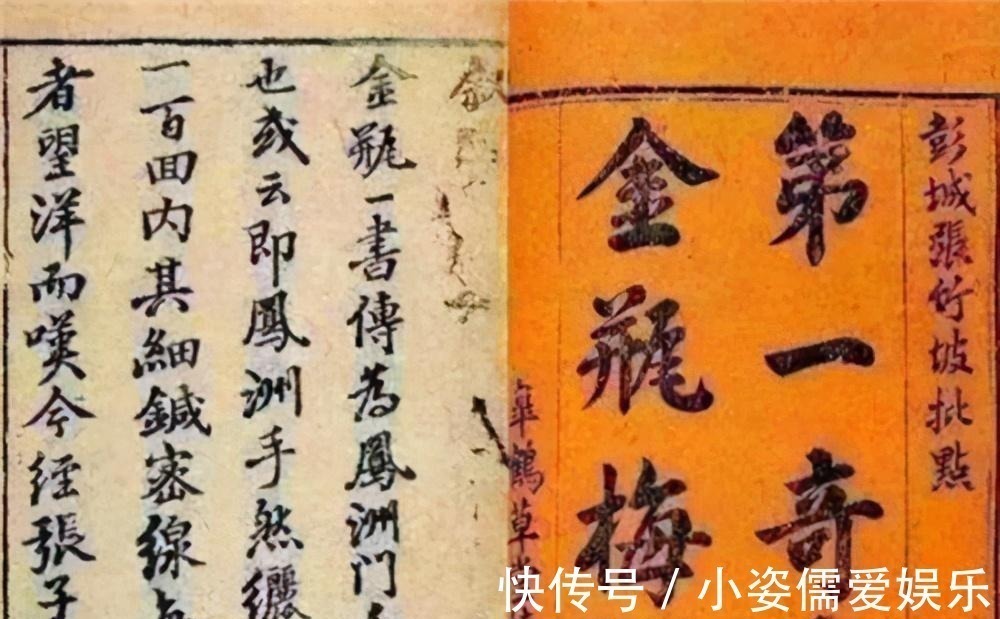 彭城張竹坡批點
第一奇
金瓶梅
臯鶴草
敘
金瓶一書傳為鳳洲門
也或云即鳳洲手然纚
一百回内其細鍼密線
者望洋而嘆今經張子
快传号 / 小姿儒爱娱乐